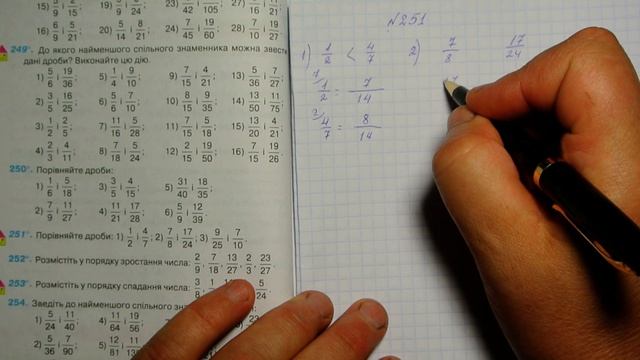 15) 5/9 і 19/24
16) 6/9 і 5/21; 20) 5/14 і 8/21; 24) 7/45 і 19/60; 28) 7/10 і 19/27
249°. До якого найменшого спільного знаменника можна звести
дані дроби? Виконайте цю дію.
1) 5/6 і 19/36; 5) 1/4 і 9/10; 9) 7/15 і 4/21; 13) 5/36 і 7/27;
2) 3/8 і 6/25; 6) 5/6 і 7/10; 10) 8/15 і 9/35; 14) 13/50 і 11/75;
3) 1/2 і 2/5; 7) 11/16 і 5/28; 11) 7/15 і 5/18; 15) 13/20 і 4/21;
4) 2/3 і 4/11; 8) 7/18 і 5/24; 12) 2/15 і 19/50; 16) 7/15 і 19/26.
250°. Порівняйте дроби:
1) 1/6 і 5/18; 3) 3/5 і 4/15; 5) 31/40 і 18/35;
2) 7/9 і 11/27; 4) 11/21 і 17/28; 6) 5/9 і 12/39.
251°. Порівняйте дроби: 1) 1/2 і 4/7; 2) 7/8 і 17/24; 3) 9/25 і 7/10.
252°. Розмістіть у порядку зростання числа: 2/9, 7/18, 13/27, 2/3, 23/27.
253°. Розмістіть у порядку спадання числа: 3/8, 1/, 5/24.
254. Зведіть до найменшого спільного
1) 5/24 і 11/40; 4) 11/64 і 19/56;
2) 5/36 і 7/90; 5) 12/81 і 11/
№251
1) 1/2 < 4/7 2) 7/8 17/24
1/2 = 7/14
4/7 = 8/14